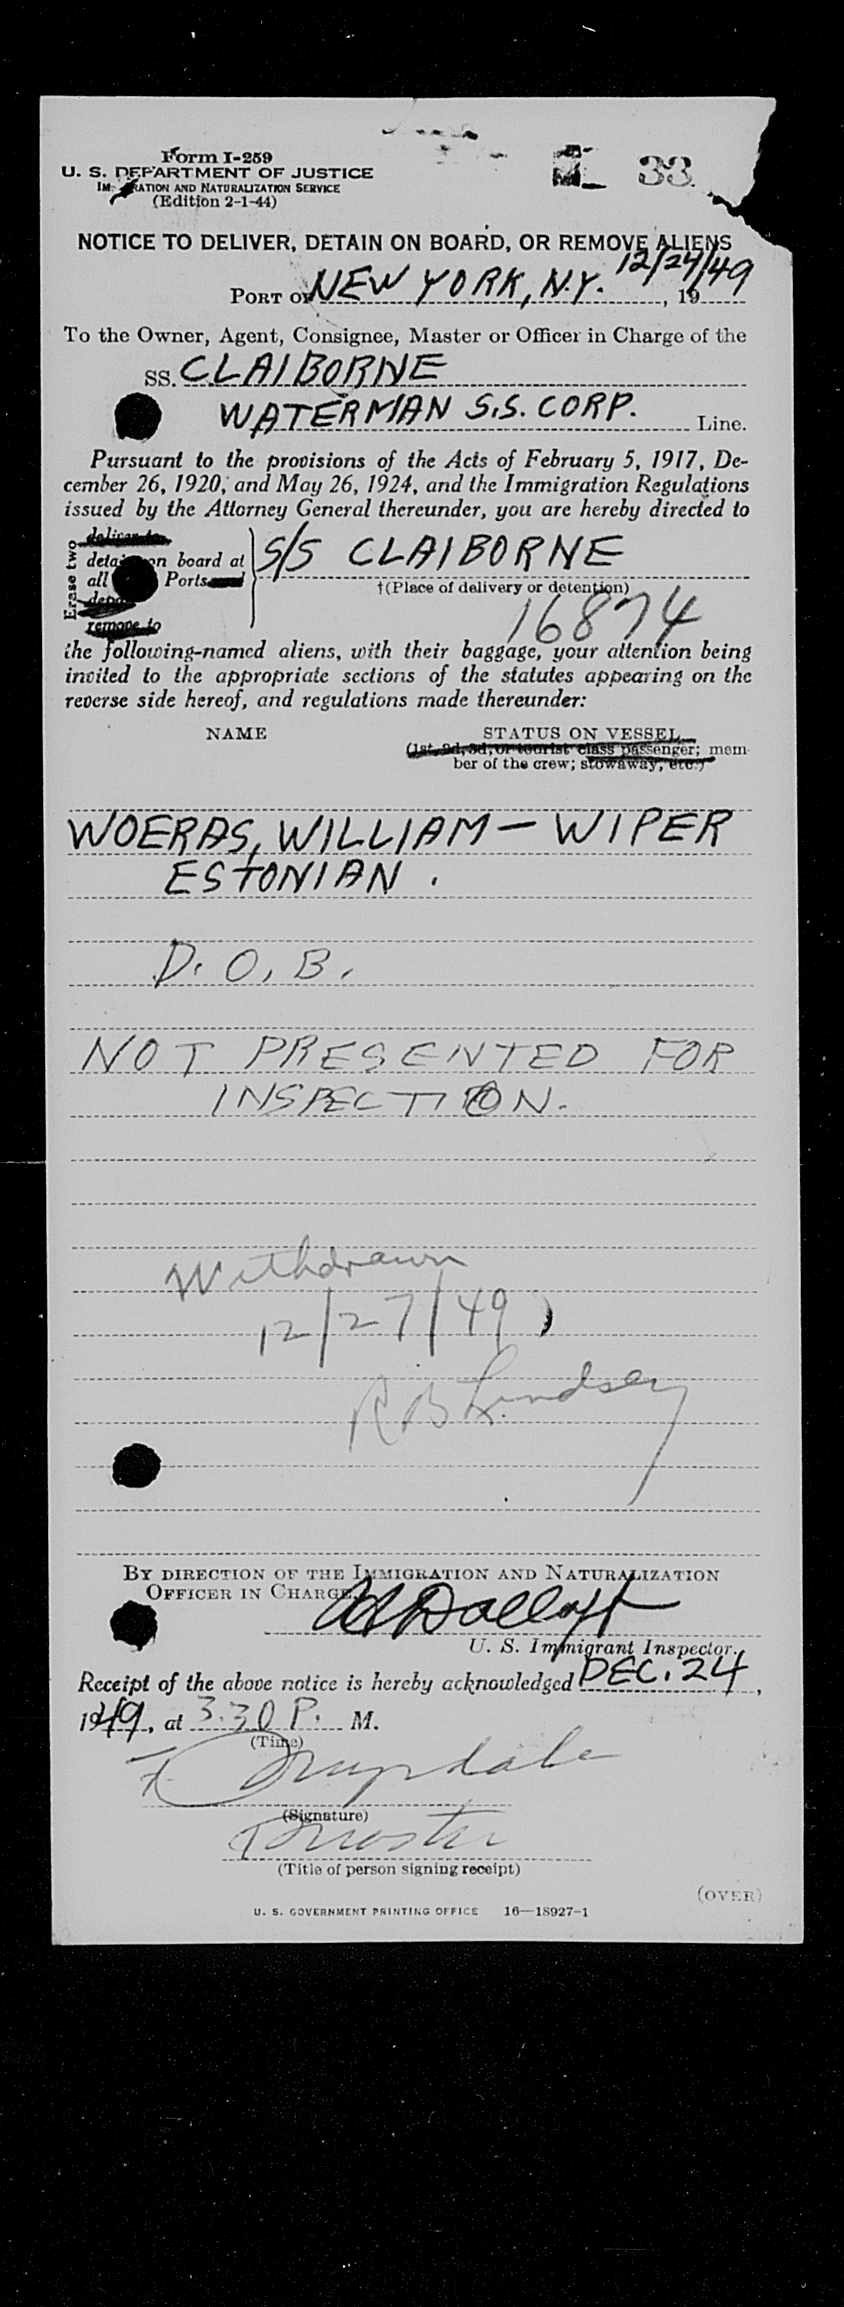 33
Form I-259
U. S. DEPARTMENT OF JUSTICE
IMMIGRATION AND NATURALIZATION SERVICE
(Edition 2-1-44)
NOTICE TO DELIVER, DETAIN ON BOARD, OR REMOVE ALIENS
12/24/49
PORT OF NEW YORK, N.Y. , 19
To the Owner, Agent, Consignee, Master or Officer in Charge of the
SS. CLAIBORNE
WATERMAN S.S. CORP. Line.
Pursuant to the provisions of the Acts of February 5, 1917, De-
cember 26, 1920, and May 26, 1924, and the Immigration Regulations
issued by the Attorney General thereunder, you are hereby directed to
Erase two
deliver to
detain on board at
all Ports
remove to
S/S CLAIBORNE
†(Place of delivery or detention)
16874
the following-named aliens, with their baggage, your attention being
invited to the appropriate sections of the statutes appearing on the
reverse side hereof, and regulations made thereunder:
NAME STATUS ON VESSEL
(1st, 2d, 3d, or tourist class passenger; mem-
ber of the crew; stowaway, etc.)
WOERAS, WILLIAM — WIPER
ESTONIAN.
D.O.B.
NOT PRESENTED FOR
INSPECTION.
Withdrawn
12/27/49
R B Lindsey
BY DIRECTION OF THE IMMIGRATION AND NATURALIZATION
OFFICER IN CHARGE.
U. S. Immigrant Inspector.
Receipt of the above notice is hereby acknowledged DEC. 24,
1949, at 3.30 P. M.
(Time)
(Signature)
(Title of person signing receipt)
(OVER)
U. S. GOVERNMENT PRINTING OFFICE 16—18927-1